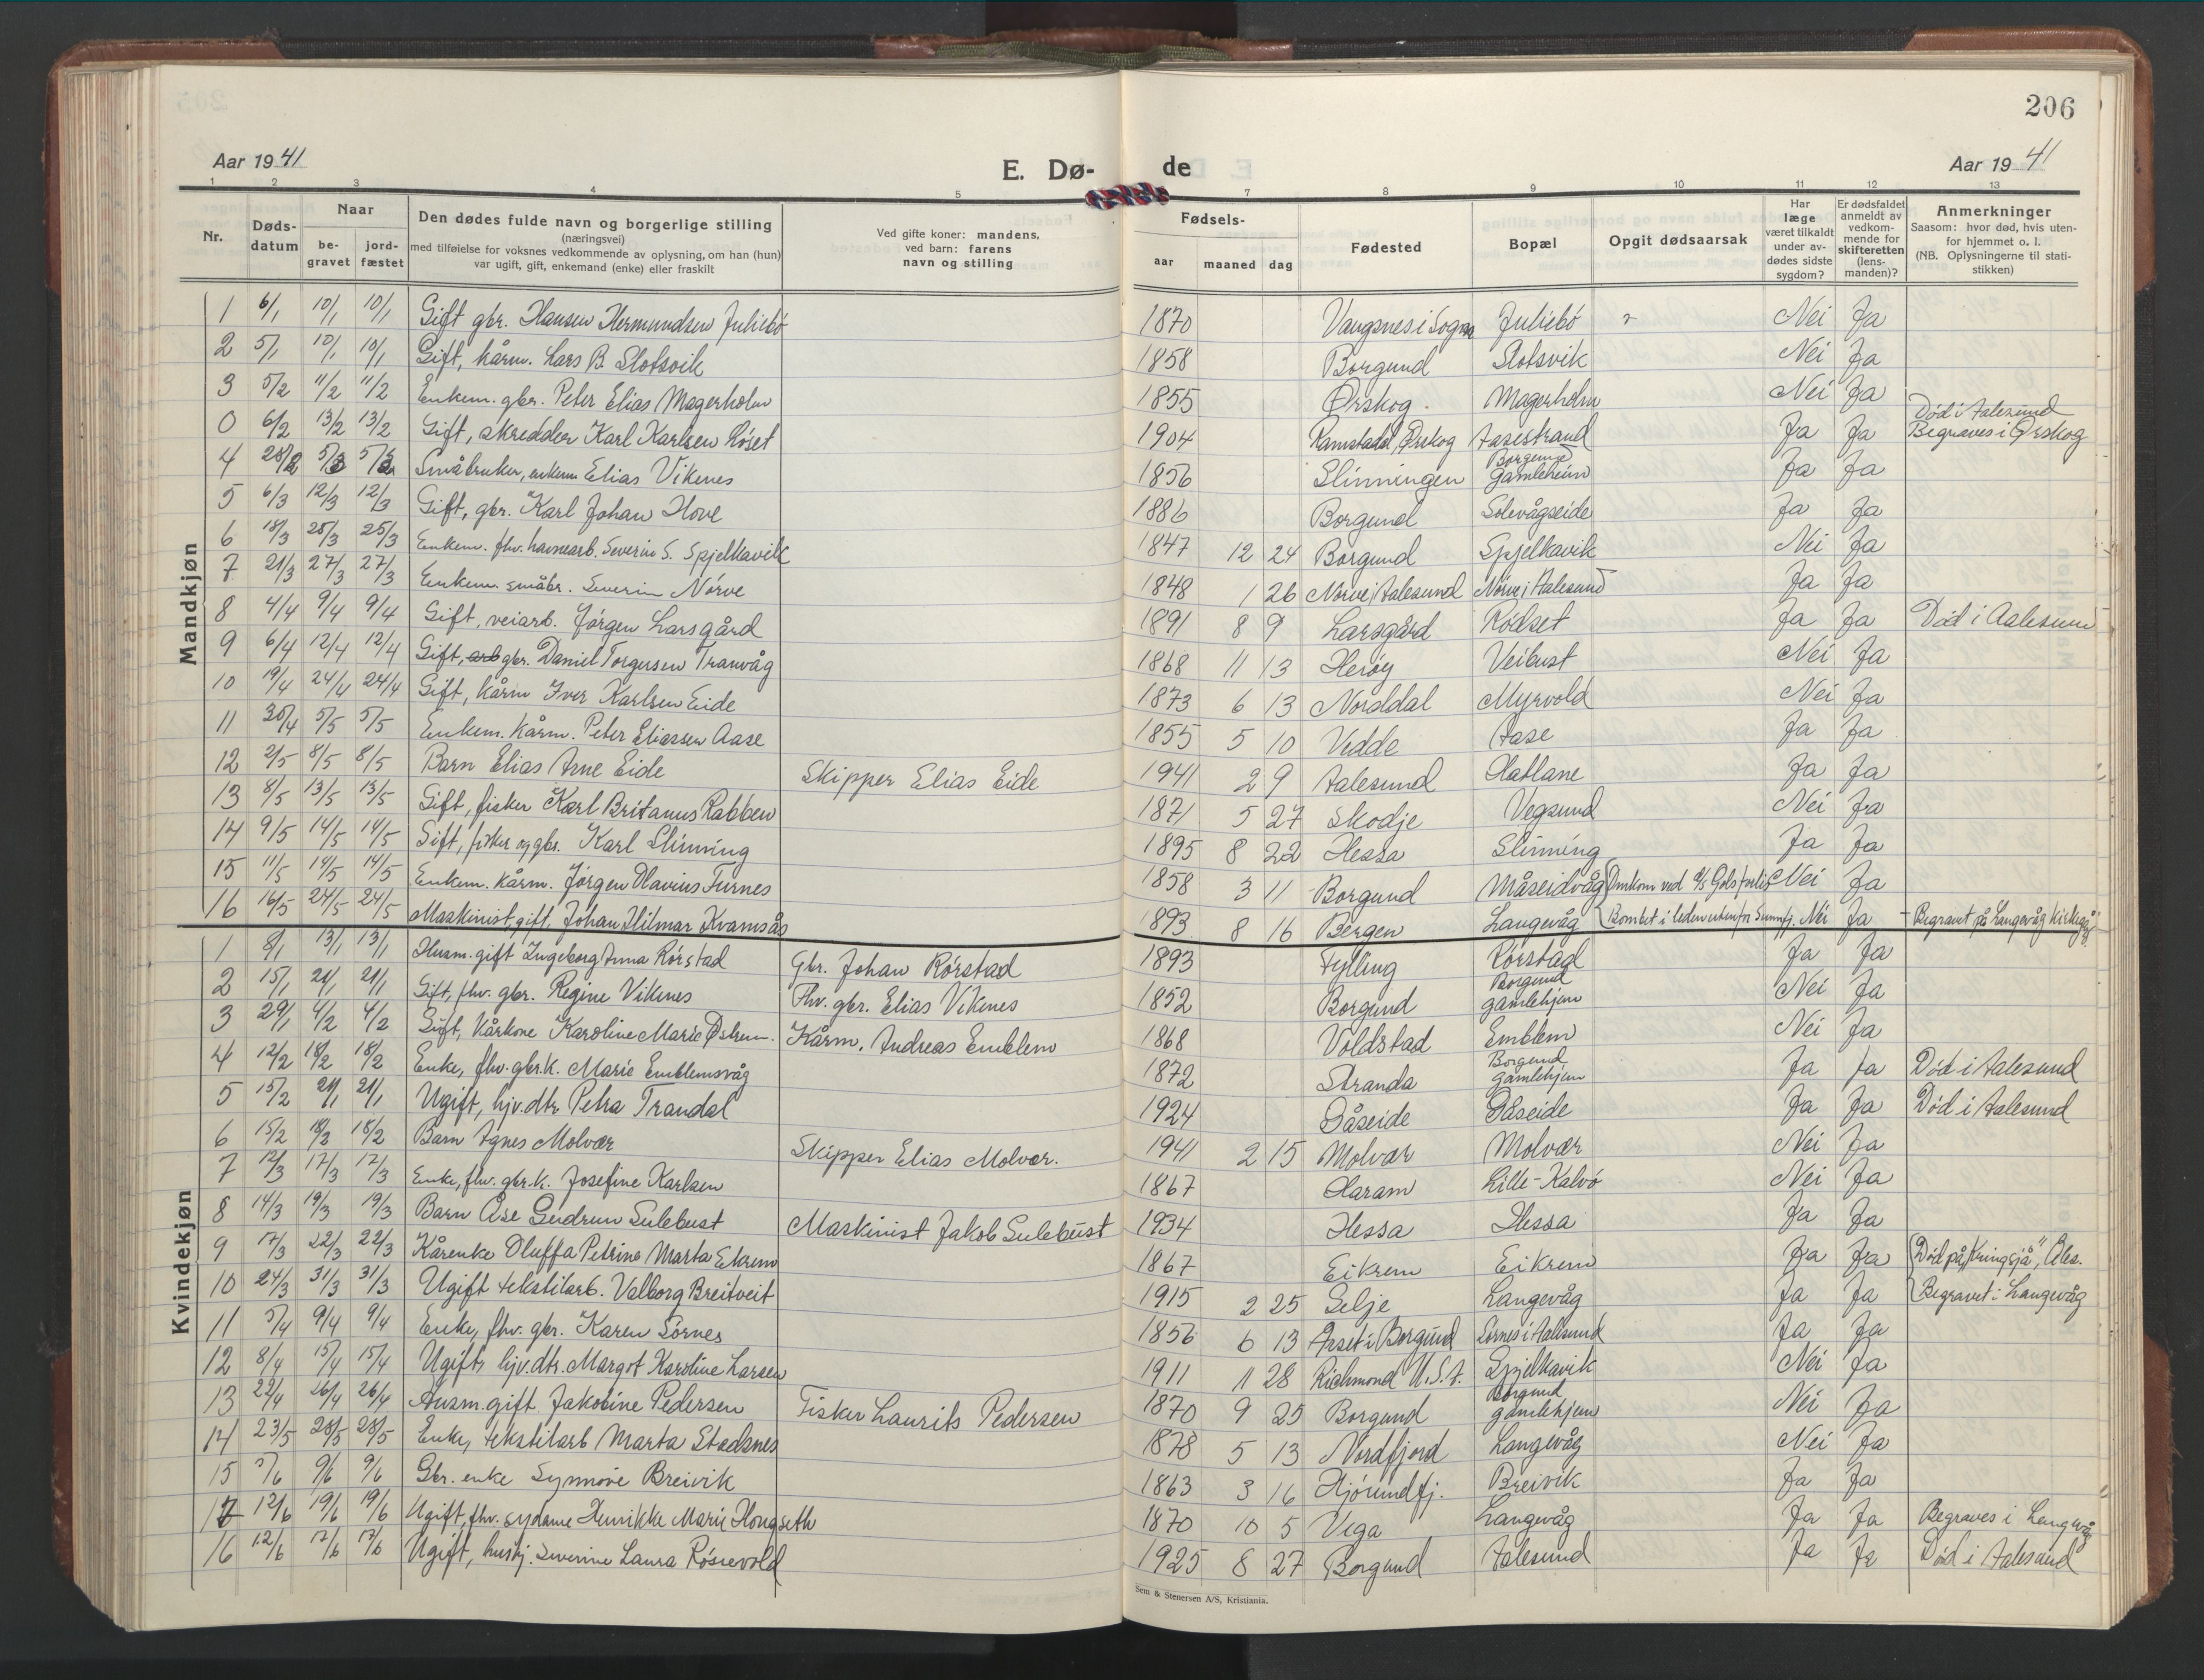 206
Aar 1941
E. Dø-
de
Aar 1941
1 2 3 4 5 7 8 9 10 11 12 13
Nr.
Døds-
datum
Naar
be-
gravet
jord-
fæstet
Den dødes fulde navn og borgerlige stilling
(næringsvei)
med tilføielse for voksnes vedkommende av oplysning, om han (hun)
var ugift, gift, enkemand (enke) eller fraskilt
Ved gifte koner: mandens,
ved barn: farens
navn og stilling
Fødsels-
aar maaned dag
Fødested
Bopæl
Opgit dødsaarsak
Har
læge
været tilkaldt
under av-
dødes sidste
sygdom?
Er dødsfaldet
anmeldt av
vedkom-
mende for
skifteretten
(lens-
manden)?
Anmerkninger
Saasom: hvor død, hvis uten-
for hjemmet o. l.
(NB. Oplysningerne til stati-
stikken)
Mandkjøn
1 6/1 10/1 10/1 Gift gbr. Hansen Hermundsen Juliebø 1870 Vangsnes i Sogn Juliebø Nei Ja
2 5/1 10/1 10/1 Gift, kårm. Lars B. Slotsvik 1858 Borgund Slotsvik Nei Ja
3 5/2 11/2 11/2 Enkem. gbr. Peter Elias Magerholm 1855 Ørskog Magerholm Nei Ja
0 6/2 13/2 13/2 Gift, skredder Karl Karlsen Røset 1904 Ramstadal, Ørskog Aasestrand Ja Ja Død i Aalesund Begraves i Ørskog
4 28/2 5/3 5/3 Småbruker, enkem Elias Vikenes 1856 Slinningen Borgund Gamleheim Ja Ja
5 6/3 12/3 12/3 Gift, gbr. Karl Johan Hove 1886 Borgund Solevågseide Ja Ja
6 18/3 25/3 25/3 Enkem. fhv. havnearb. Severin S. Spjelkavik 1847 12 24 Borgund Spjelkavik Nei Ja
7 21/3 27/3 27/3 Enkem. småbr. Severin Nørve 1848 1 26 Nørve i Aalesund Nørve i Aalesund Ja Ja
8 4/4 9/4 9/4 Gift, veiarb. Jørgen Larsgård 1891 8 9 Larsgård Rødset Ja Ja Død i Aalesund
9 6/4 12/4 12/4 Gift, arb gbr. Daniel Torgusen Tranvåg 1868 11 13 Herøy Veibust Nei Ja
10 19/4 24/4 24/4 Gift, kårm Iver Karlsen Eide 1873 6 13 Norddal Myrvold Nei Ja
11 30/4 5/5 5/5 Enkem. Kårm. Peter Eliassen Aase 1855 5 10 Vedde Aase Ja Ja
12 2/5 8/5 8/5 Barn Elias Arne Eide Skipper Elias Eide 1941 2 9 Aalesund Hatlane Ja Ja
13 8/5 13/5 13/5 Gift, fisker Karl Britanus Rabben 1871 5 27 Skodje Vegsund Nei Ja
14 9/5 14/5 14/5 Gift, fisker og gbr. Karl Slinning 1895 8 22 Hessa Slinning Ja Ja
15 11/5 14/5 14/5 Enkem. kårm. Jørgen Olavius Furnes 1858 3 11 Borgund Måseidvåg Nei Ja
16 16/5 24/5 24/5 Maskinist, gift, Johan Hilmar Kvamsås 1893 8 16 Bergen Langevåg Omkom ved Bombet i leden utenfor Sunnfj. Nei Ja Begravet på Langevåg kirkegård
Kvindekjøn
1 8/1 13/1 13/1 Husm. gift Ingeborg Anna Rørstad Gbr. Johan Rørstad 1893 Fylling Rørstad Ja Ja
2 15/1 21/1 21/1 Gift, fhv. gbr. Regine Vikenes Fhv. gbr. Elias Vikenes 1852 Borgund Borgund gamlehjem Nei Ja
3 29/1 4/2 4/2 Gift, kårkone Karoline Marie Østrem. Kårm. Andreas Emblem 1868 Voldstad Emblem Nei Ja
4 12/2 18/2 18/2 Enke, fhv. gbr.k. Marie Emblemsvåg 1872 Stranda Borgund gamlehjem Ja Ja Død i Aalesund
5 15/2 21/1 21/1 Ugift, hjv. dtr. Petra Trandal 1924 Gåseide Gåseide Ja Ja Død i Aalesund
6 15/2 18/2 18/2 Barn Agnes Molvær Skipper Elias Molvær. 1941 2 15 Molvær Molvær Nei Ja
7 12/3 17/3 17/3 Enke, fhv. gbr.k. Josefine Karlsen 1867 Haram Lille-Kalvø Nei Ja
8 14/3 19/3 19/3 Barn Åse Gudrun Sulebust Maskinist Jakob Sulebust 1934 Hessa Hessa Ja Ja
9 17/3 22/3 22/3 Kårenke Oluffa Petrine Marta Ekrem 1867 Eikrem Eikrem Ja Ja Død på "Kringsjå", Åles.
10 24/3 31/3 31/3 Ugift tekstilarb. Valborg Breitveit 1915 2 25 Selje Langevåg Ja Ja Begravet i Langevåg
11 5/4 9/4 9/4 Enke, fhv. gbr. Karen Sørnes 1856 6 13 Årset i Borgund Sørnes i Aalesund Ja Ja
12 8/4 15/4 15/4 Ugift, hjv. dtr. Margot Karoline Larsen 1911 11 28 Richmond U.S.A. Spjelkavik Nei Ja
13 22/4 26/4 26/4 Husm. gift Jakobine Pedersen Fisker Laurits Pedersen 1870 9 25 Borgund Borgund gamlehjem Nei Ja
14 23/5 28/5 28/5 Enke, tekstilarb Marta Stadsnes 1878 5 13 Nordfjord Langevåg Nei Ja
15 5/6 9/6 9/6 Gbr. enke Synnøve Breivik 1863 3 16 Hjørundfj. Breivik Ja Ja
17 12/6 19/6 19/6 Ugift, fhv. sydame Henrikke Marie Hongseth 1870 10 5 Vega Langevåg Ja Ja Begraves i Langevåg
16 12/6 17/6 17/6 Ugift, hushj. Severine Laura Røssevold 1925 8 27 Borgund Aalesund Ja Ja Død i Aalesund
Sem & Stenersen A/S, Kristiania.